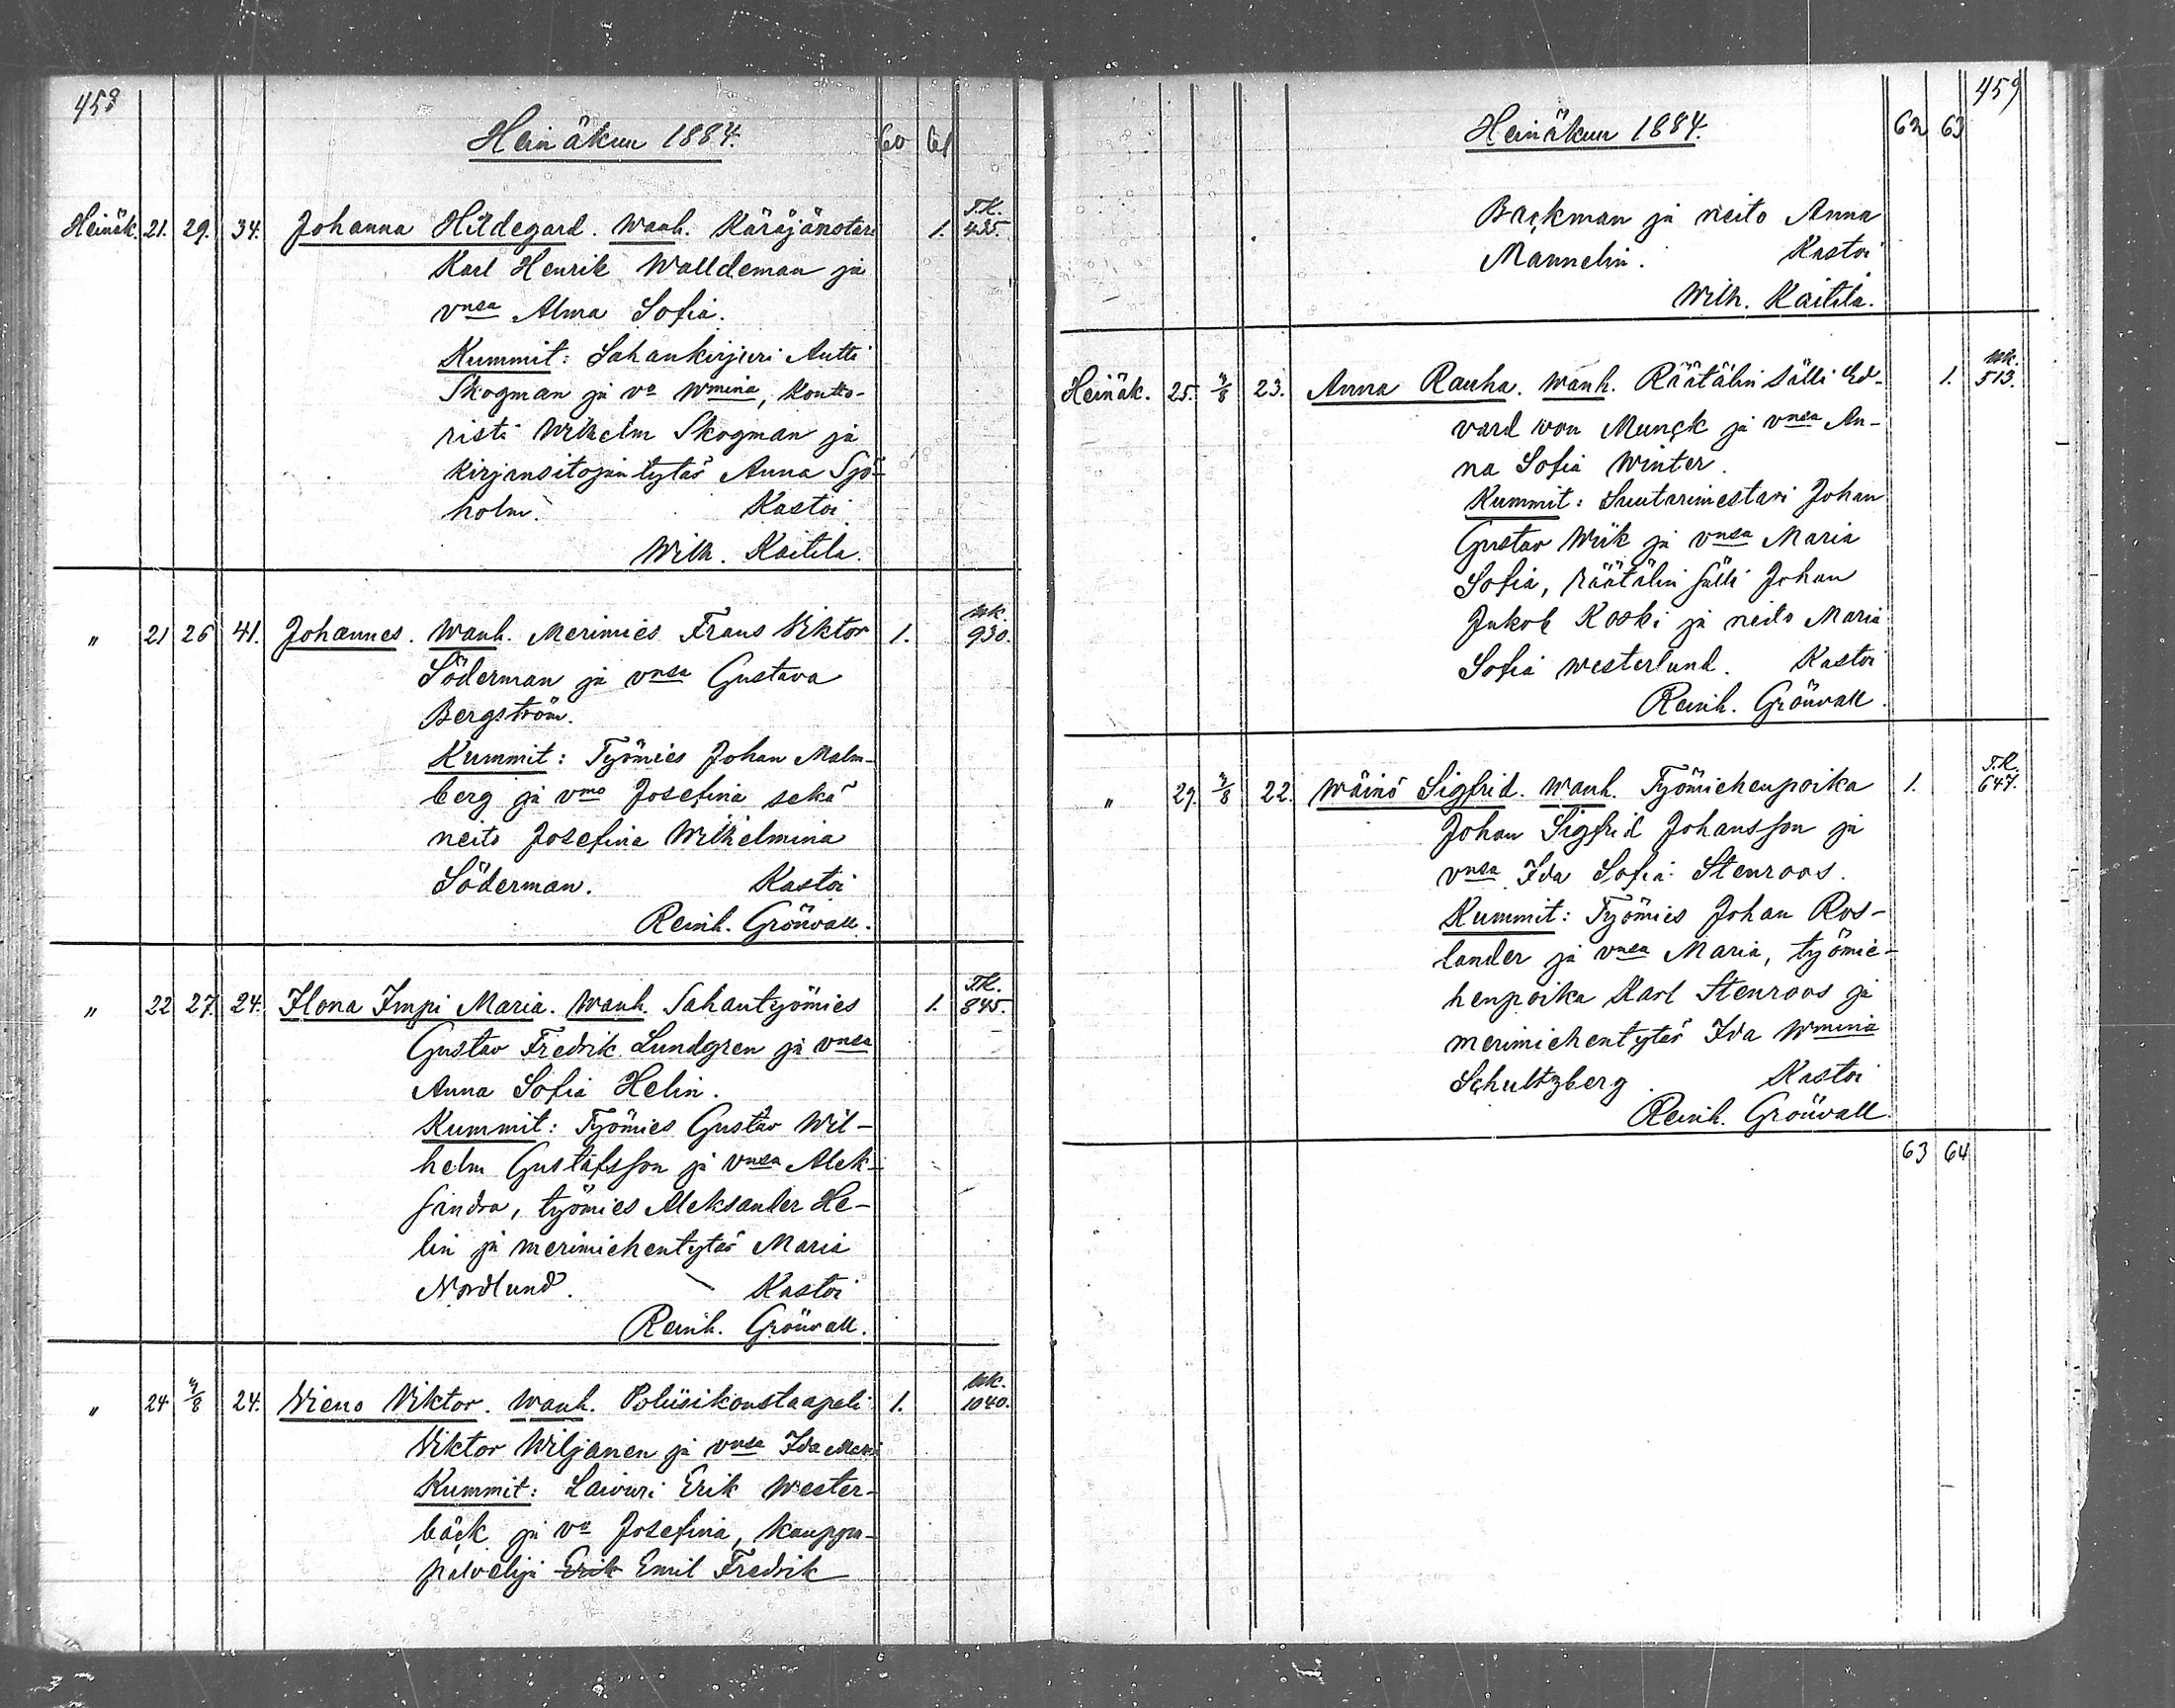 458
Heinäkuu 1884. 60 61
Heinäk. 21. 29. 34. Johanna Hildegard. Wanh. Käräjänotari 1. T.K. 435.
Karl Henrik Walldeman ja
vnsa Alma Sofia.
Kummit: Sahankirjuri Antti
Skogman ja vo Wmina, kontto-
risti Wilhelm Skogman ja
kirjansitojantytär Anna Sjö-
holm. Kastoi
Wilh. Kaitila.
" 21 26 41. Johannes. Wanh. Merimies Frans Viktor 1. Uk. 930.
Söderman ja vnsa Gustava
Bergström.
Kummit: Työmies Johan Malm-
berg ja vmo Josefina sekä
neito Josefina Wilhelmina
Söderman. Kastoi
Reinh. Grönvall.
" 22 27. 24. Ilona Impi Maria. Wanh. Sahantyömies 1. T.K. 845.
Gustav Fredrik Lundgren ja vnsa
Anna Sofia Helin.
Kummit: Työmies Gustav Wil-
helm Gustafsson ja vnsa Alek-
sandra, työmies Aleksander He-
lin ja merimiehentytär Maria
Nordlund. Kastoi
Reinh. Grönvall.
" 24 3/8 24. Vieno Viktor. Wanh. Poliisikonstaapeli 1. Uk. 1040.
Viktor Wiljanen ja vnsa Ida Maria
Kummit: Laivuri Erik Wester-
bäck ja vo Josefina, kauppa-
palvelija Erik Emil Fredrik
459
Heinäkuu 1884. 62 63
Backman ja neito Anna
Mannelin. Kastoi
Wilh. Kaitila.
Heinäk. 25. 3/8 23. Anna Rauha. Wanh. Räätälin sälli Ed- 1. Uk. 513.
vard von Munck ja vnsa An-
na Sofia Winter.
Kummit: Suutarimestari Johan
Gustav Wiik ja vnsa Maria
Sofia, räätälin sälli Johan
Jakob Koski ja neito Maria
Sofia Westerlund. Kastoi
Reinh. Grönvall.
" 29. 3/8 22. Wäinö Sigfrid. Wanh. Työmiehenpoika 1. T.K. 647.
Johan Sigfrid Johansson ja
vnsa Ida Sofia Stenroos.
Kummit: Työmies Johan Ros-
lander ja vnsa Maria, työmie-
henpoika Karl Stenroos ja
merimiehentytär Ida Wmina
Schultzberg. Kastoi
Reinh. Grönvall.
63 64